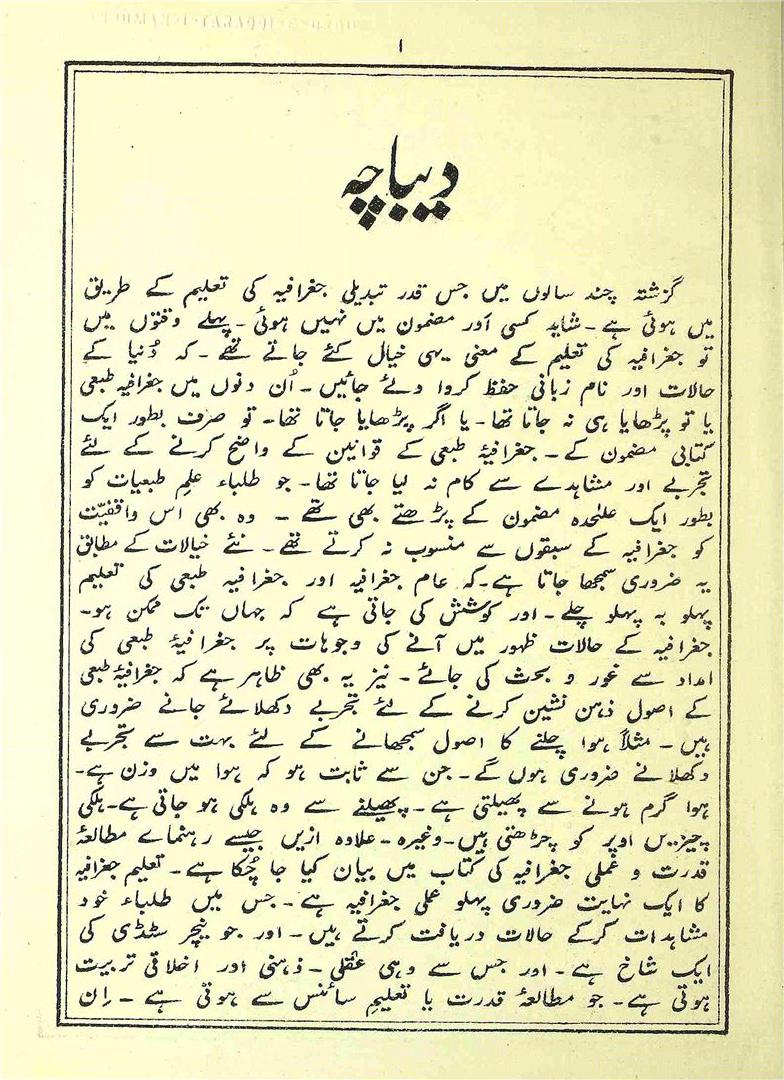 ۱
دیباچہ
گزشتہ چند سالوں میں جس قدر تبدیلی جغرافیہ کی تعلیم کے طریق
میں ہوئی ہے۔ شاید کسی اَور مضمون میں نہیں ہوئی۔ پہلے وقتوں میں
تو جغرافیہ کی تعلیم کے معنی یہی خیال کئے جاتے تھے۔ کہ دُنیا کے
حالات اور نام زبانی حفظ کروا دئے جائیں۔ اُن دنوں میں جغرافیہ طبعی
یا تو پڑھایا ہی نہ جاتا تھا۔ یا اگر پڑھایا جاتا تھا۔ تو صرف بطور ایک
کتابی مضمون کے۔ جغرافیۂ طبعی کے قوانین کے واضح کرنے کے لئے
تجربے اور مشاہدے سے کام نہ لیا جاتا تھا۔ جو طلباء علمِ طبعیات کو
بطور ایک علیٰحدہ مضمون کے پڑھتے بھی تھے۔ وہ بھی اس واقفیّت
کو جغرافیہ کے سبقوں سے منسوب نہ کرتے تھے۔ نئے خیالات کے مطابق
یہ ضروری سمجھا جاتا ہے۔ کہ عام جغرافیہ اور جغرافیہ طبعی کی تعلیم
پہلو بہ پہلو چلے۔ اور کوشش کی جاتی ہے کہ جہاں تک ممکن ہو۔
جغرافیہ کے حالات ظہور میں آنے کی وجوہات پر جغرافیۂ طبعی کی
امداد سے غور و بحث کی جائے۔ نیز یہ بھی ظاہر ہے کہ جغرافیۂ طبعی
کے اصول ذہن نشین کرنے کے لئے تجربے دکھلائے جانے ضروری
ہیں۔ مثلاً ہوا چلنے کا اصول سمجھانے کے لئے بہت سے تجربے
دکھلانے ضروری ہوں گے۔ جن سے ثابت ہو کہ ہوا میں وزن ہے۔
ہوا گرم ہونے سے پھیلتی ہے۔ پھیلنے سے وہ ہلکی ہو جاتی ہے۔ ہلکی
چیزیں اوپر کو چڑھتی ہیں۔ وغیرہ۔ علاوہ ازیں جیسے رہنمائے مطالعۂ
قدرت و عملی جغرافیہ کی کتاب میں بیان کیا جا چُکا ہے۔ تعلیم جغرافیہ
کا ایک نہایت ضروری پہلو عملی جغرافیہ ہے۔ جس میں طلباء خود
مشاہدات کرکے حالات دریافت کرتے ہیں۔ اور جو نیچر سٹڈی کی
ایک شاخ ہے۔ اور جس سے وہی عقلی۔ ذہنی اور اخلاقی تربیت
ہوتی ہے۔ جو مطالعۂ قدرت یا تعلیمِ سائنس سے ہوتی ہے۔ اِن